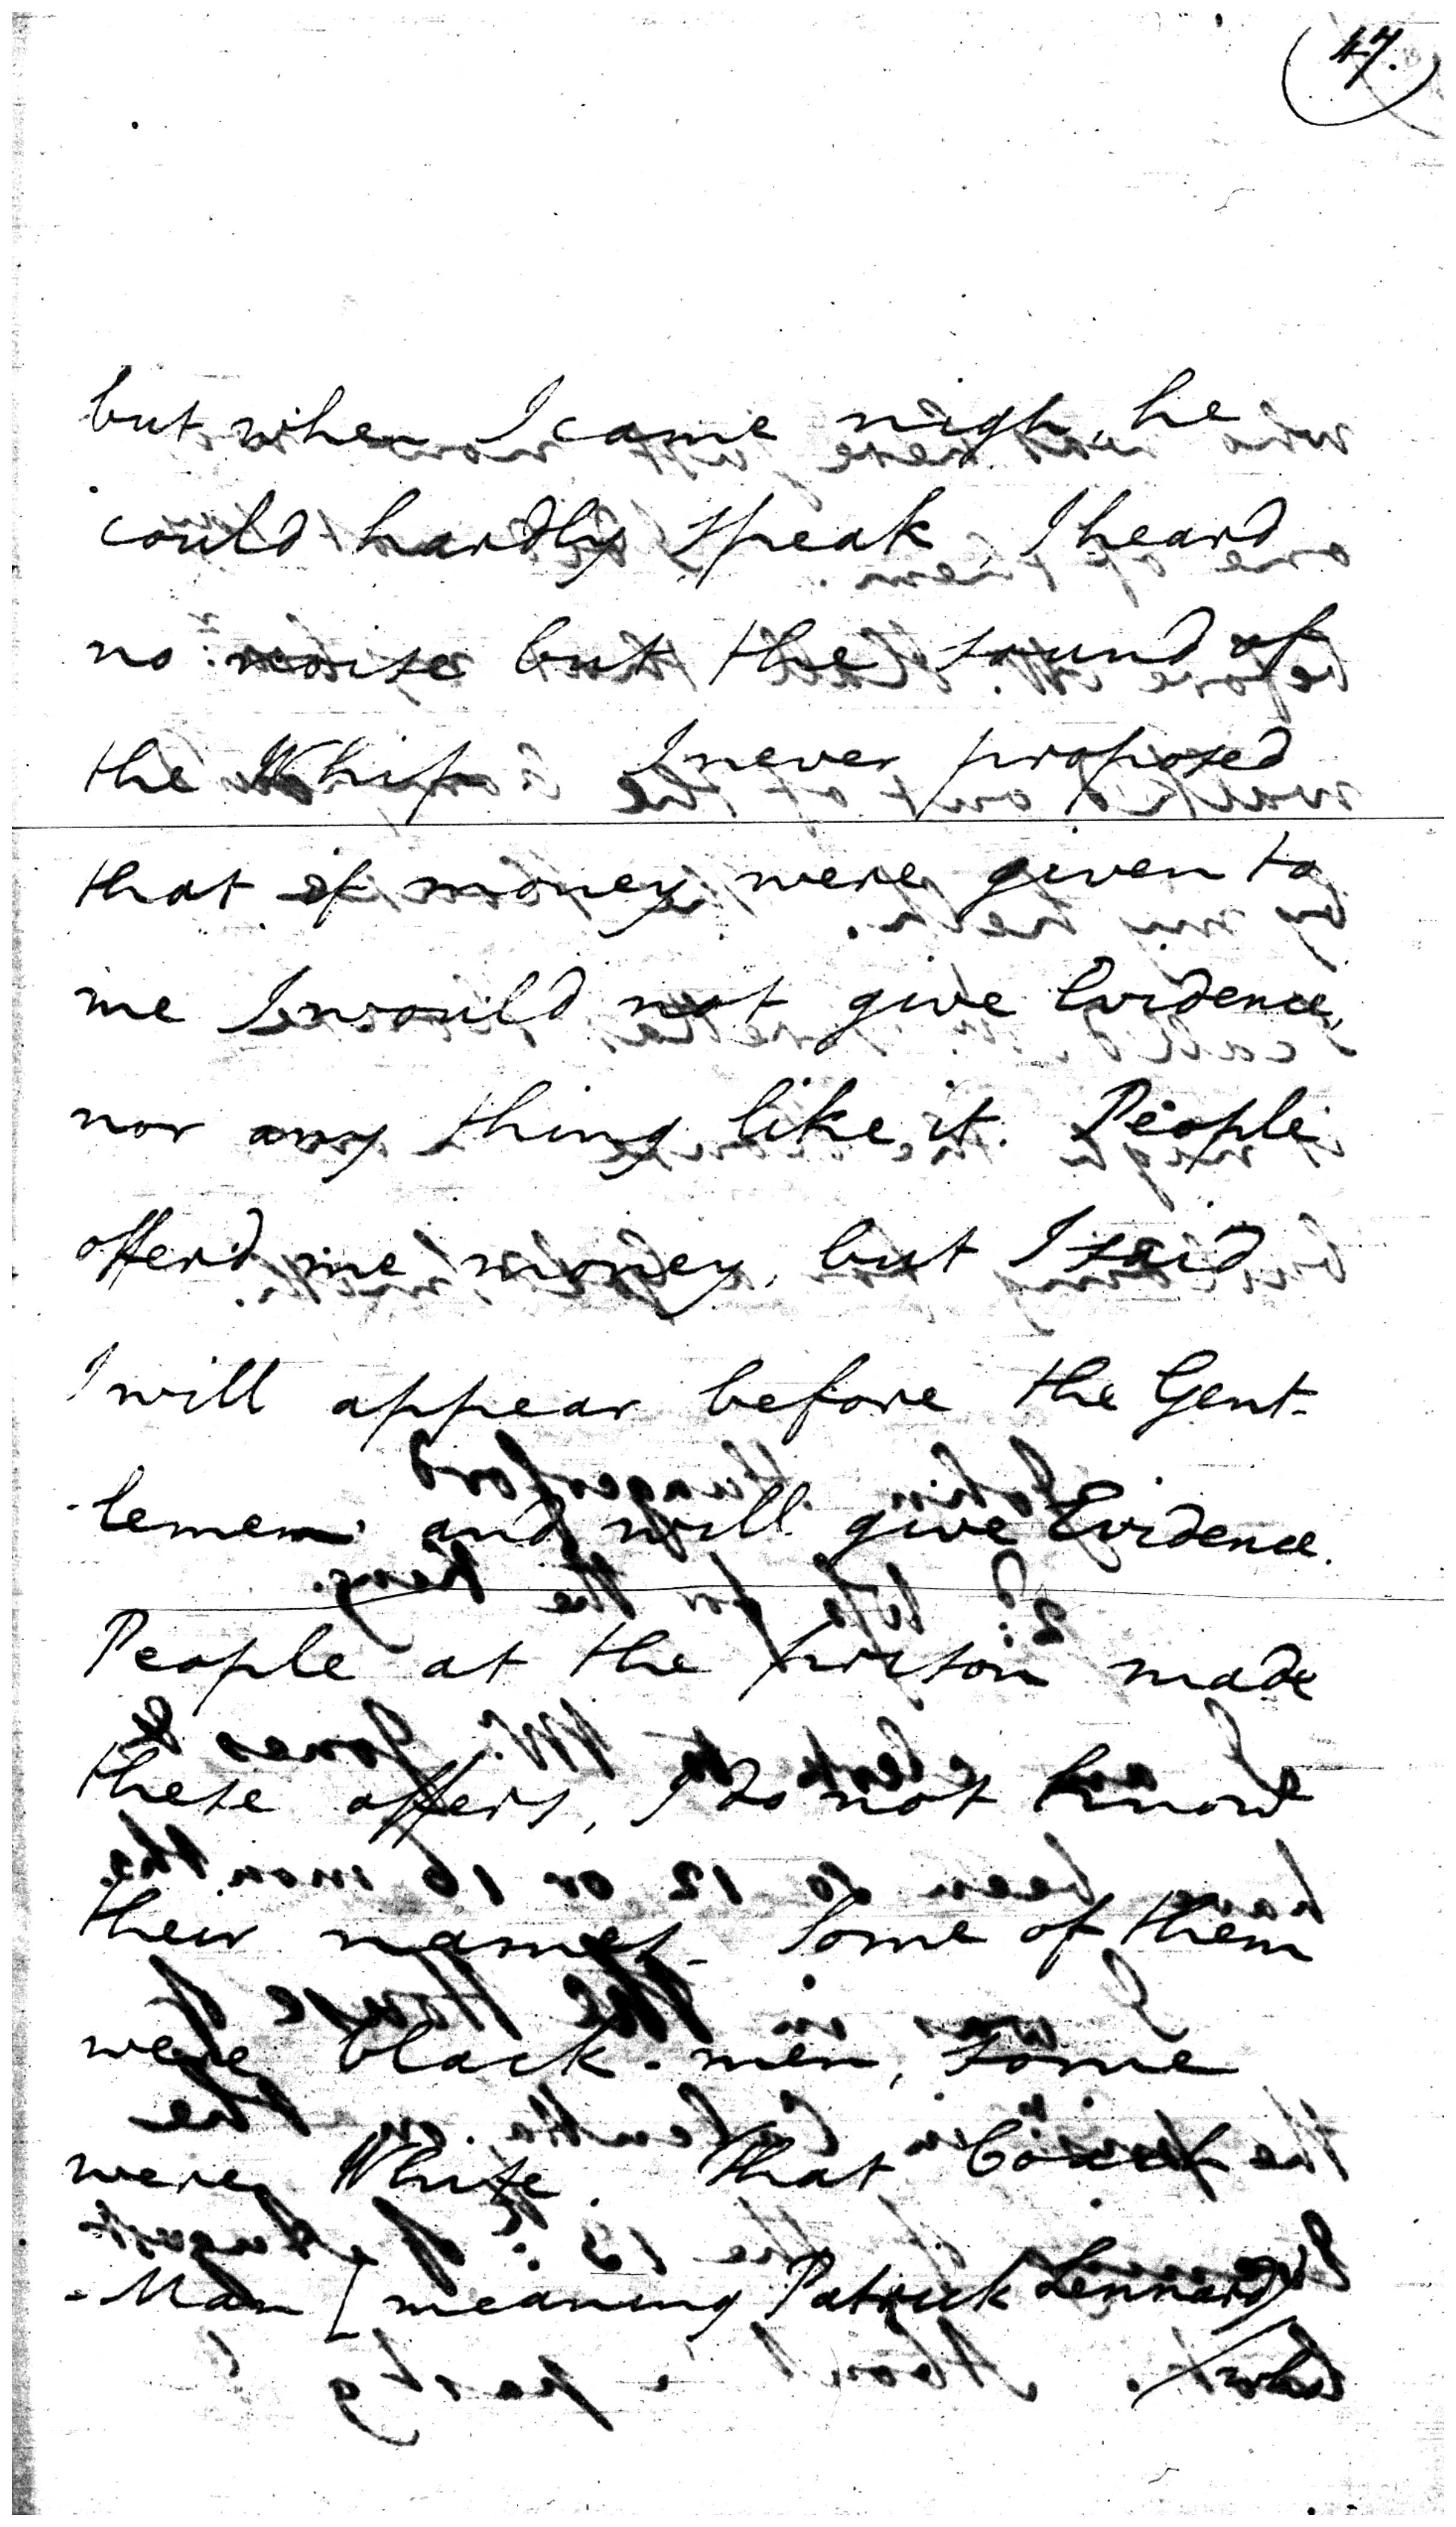 47.
but when I came nigh, he
could hardly speak, I heard
no noise but the sound of
the Whip. I never proposed
that if money were given to
me I would not give Evidence,
nor any thing like it. People
offer'd me money, but I said
I will appear before the Gent-
-lemen and will give Evidence.
People at the prison made
these offers, I do not know
their names. Some of them
were black-men, some
were White. That Court
-Man [meaning Patrick Lennard]
who